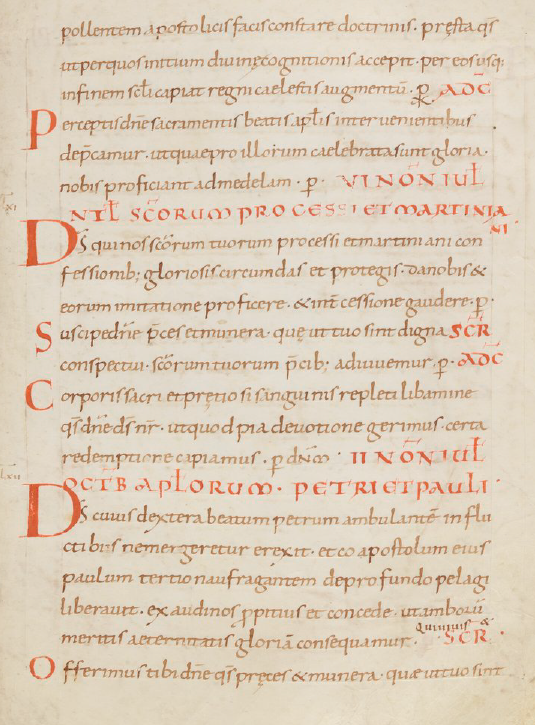 pollentem apostolicis facis constare doctrinis. pręsta qs̄
ut per quos initium divinę cognitionis accepit. per eos usq;
in finem scl̄i capiat regni caelestis augmentū. p̄ ADC̄
Perceptis dn̄e sacramentis beatis apl̄is intervenientibus
dep̄camur. ut quae pro illorum caelebrata sunt gloria.
nobis proficiant ad medelam. p̄. VI NOÑ IUL̄
XI
NTL̄ SC̄ORUM PROCESSI ET MARTINIA
NI
DS̄ qui nos sc̄orum tuorum processi et martiniani con
fessionib; gloriosis circumdas et protegis. da nobis &
eorum imitatione proficere. & int̄cessione gaudere. p̄.
Suscipe dn̄e p̄ces et munera. quę ut tuo sint digna SC̄R
conspectui. sc̄orum tuorum p̄cib; adiuvemur. p̄. ADC̄
Corporis sacri et prętiosi sanguinis repleti libamine
qs̄ dn̄e ds̄ nr̄. ut quod pia devotione gerimus. certa
redemptione capiamus. p̄ dn̄m. II NOÑ IUL̄
LXII
OCT̄B APL̄ORUM. PETRI ET PAULI.
DS̄ cuius dextera beatum petrum ambulantē in flu
ctibus ne mergeretur erexit. et co apostolum eius
paulum tertio naufragantem de profundo pelagi
liberavit. exaudi nos p̱pitius et concede. ut amborū
meritis aeternitatis gloriā consequamur. Qui vivis & SC̄R.
Offerimus tibi dn̄e qs̄ pręces & munera. quae ut tuo sint